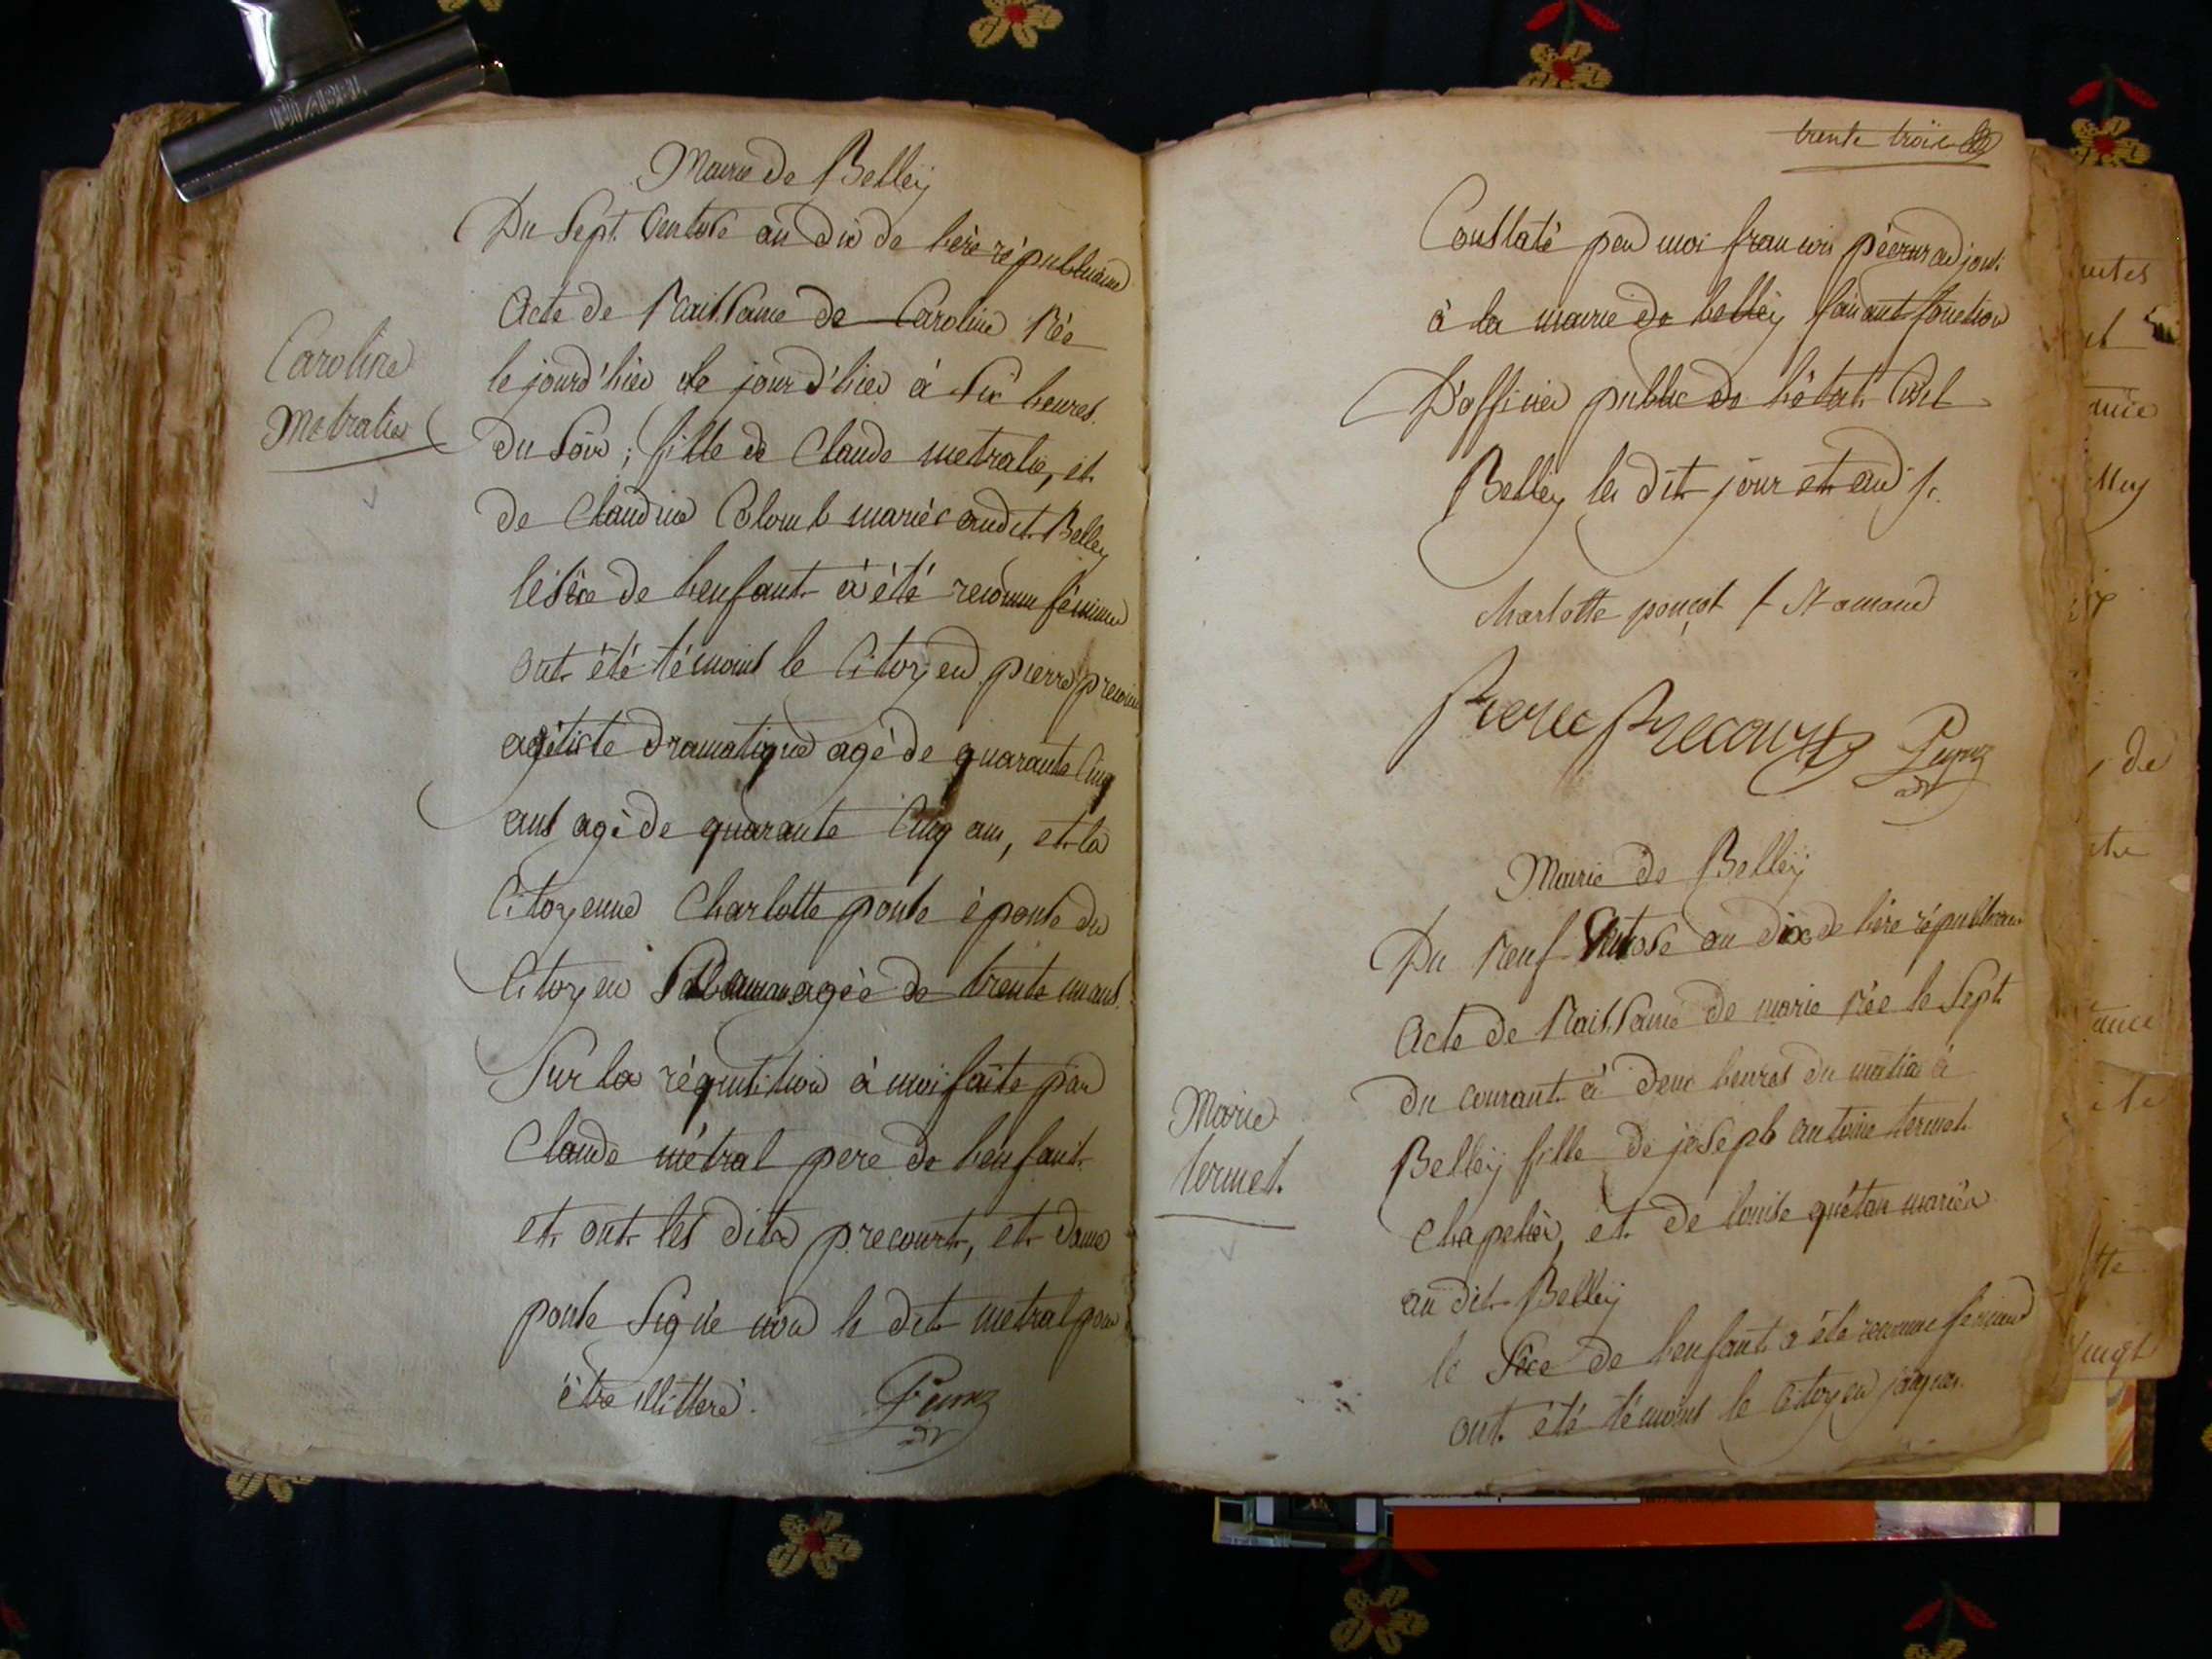 Mairie de Belleÿ
Du Sept Ventose an dix de l'ère républicaine
Acte de Naissance de Caroline Née
le jourd'hier le jourd'hier à Six heures
du Soir ; fille de Claude metralie, et
de Claudine Colomb mariés audit Belley
le Sèxe de l'enfant à été reconnu féminin
ont été témoins le Citoyen pierre
dramatique agé de quarante Cinq
ans agé de quarante Cinq ans, et la
Citoyenne Charlotte ponse épouse du
Citoyen agée de trente un ans
Sur la réquisition à moi faite par
Claude métral pere de l'enfant
et ont les dits precourt, et dame
ponse Signé non le dit metral pour
être illitteré.
Caroline
Metralie
trente trois
Constaté par moi francois adjoint
à la mairie de belley faisant fonction
D'officier public de l'état Civil
Belley les dit jour et an
charlotte ponçot f St amand
Pierre Precourt
Mairie de Belleÿ
Du Neuf Ventose an dix de l'ère républicaine
Acte de Naissance de marie Née le Sept
du courant à deux heures du matin à
Belleÿ fille de joseph antoine termet
Chapelier, et de louise quétan mariés
au dit Belleÿ
le Sèxe de l'enfant a été reconnu féminin
ont été témoins le Citoyen jacques
Marie
termet